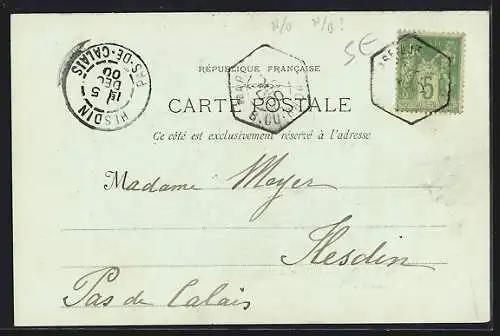 N/O N/B!
SE
RÉPUBLIQUE FRANÇAISE
CARTE POSTALE
Ce côté est exclusivement réservé à l'adresse.
HESDIN
PAS-DE-CALAIS
5
DEC
00
5
Madame Meyer
Hesdin
Pas de Calais